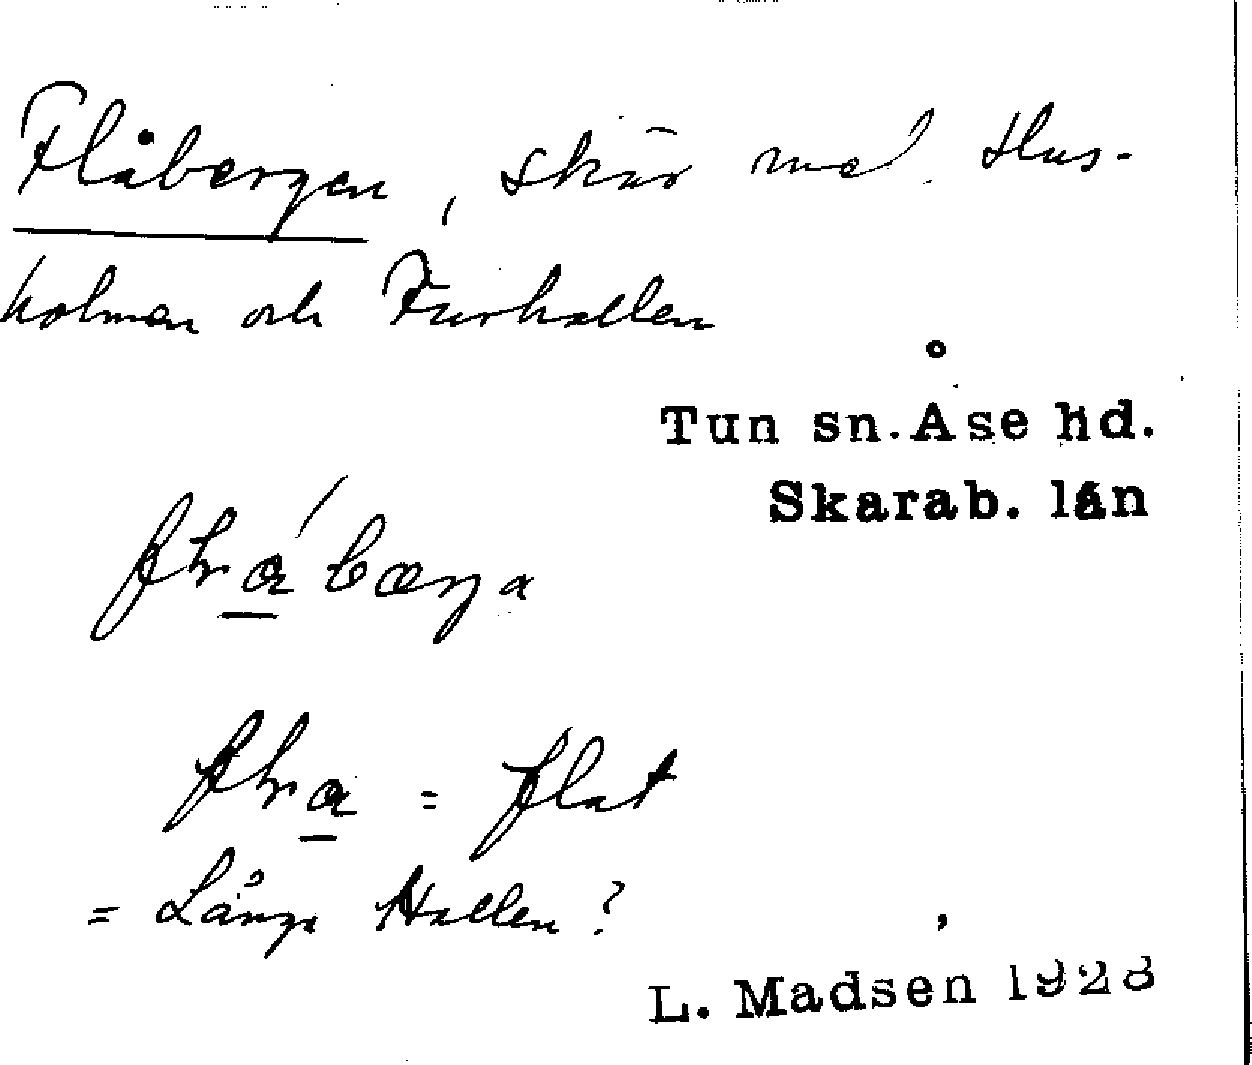 Flåbergen, skär med Hus-
holmen och Furhallen
Tun sn. Åse hd.
Skarab. län
= flat
= Långa Hallen?
L. Madsen 1928